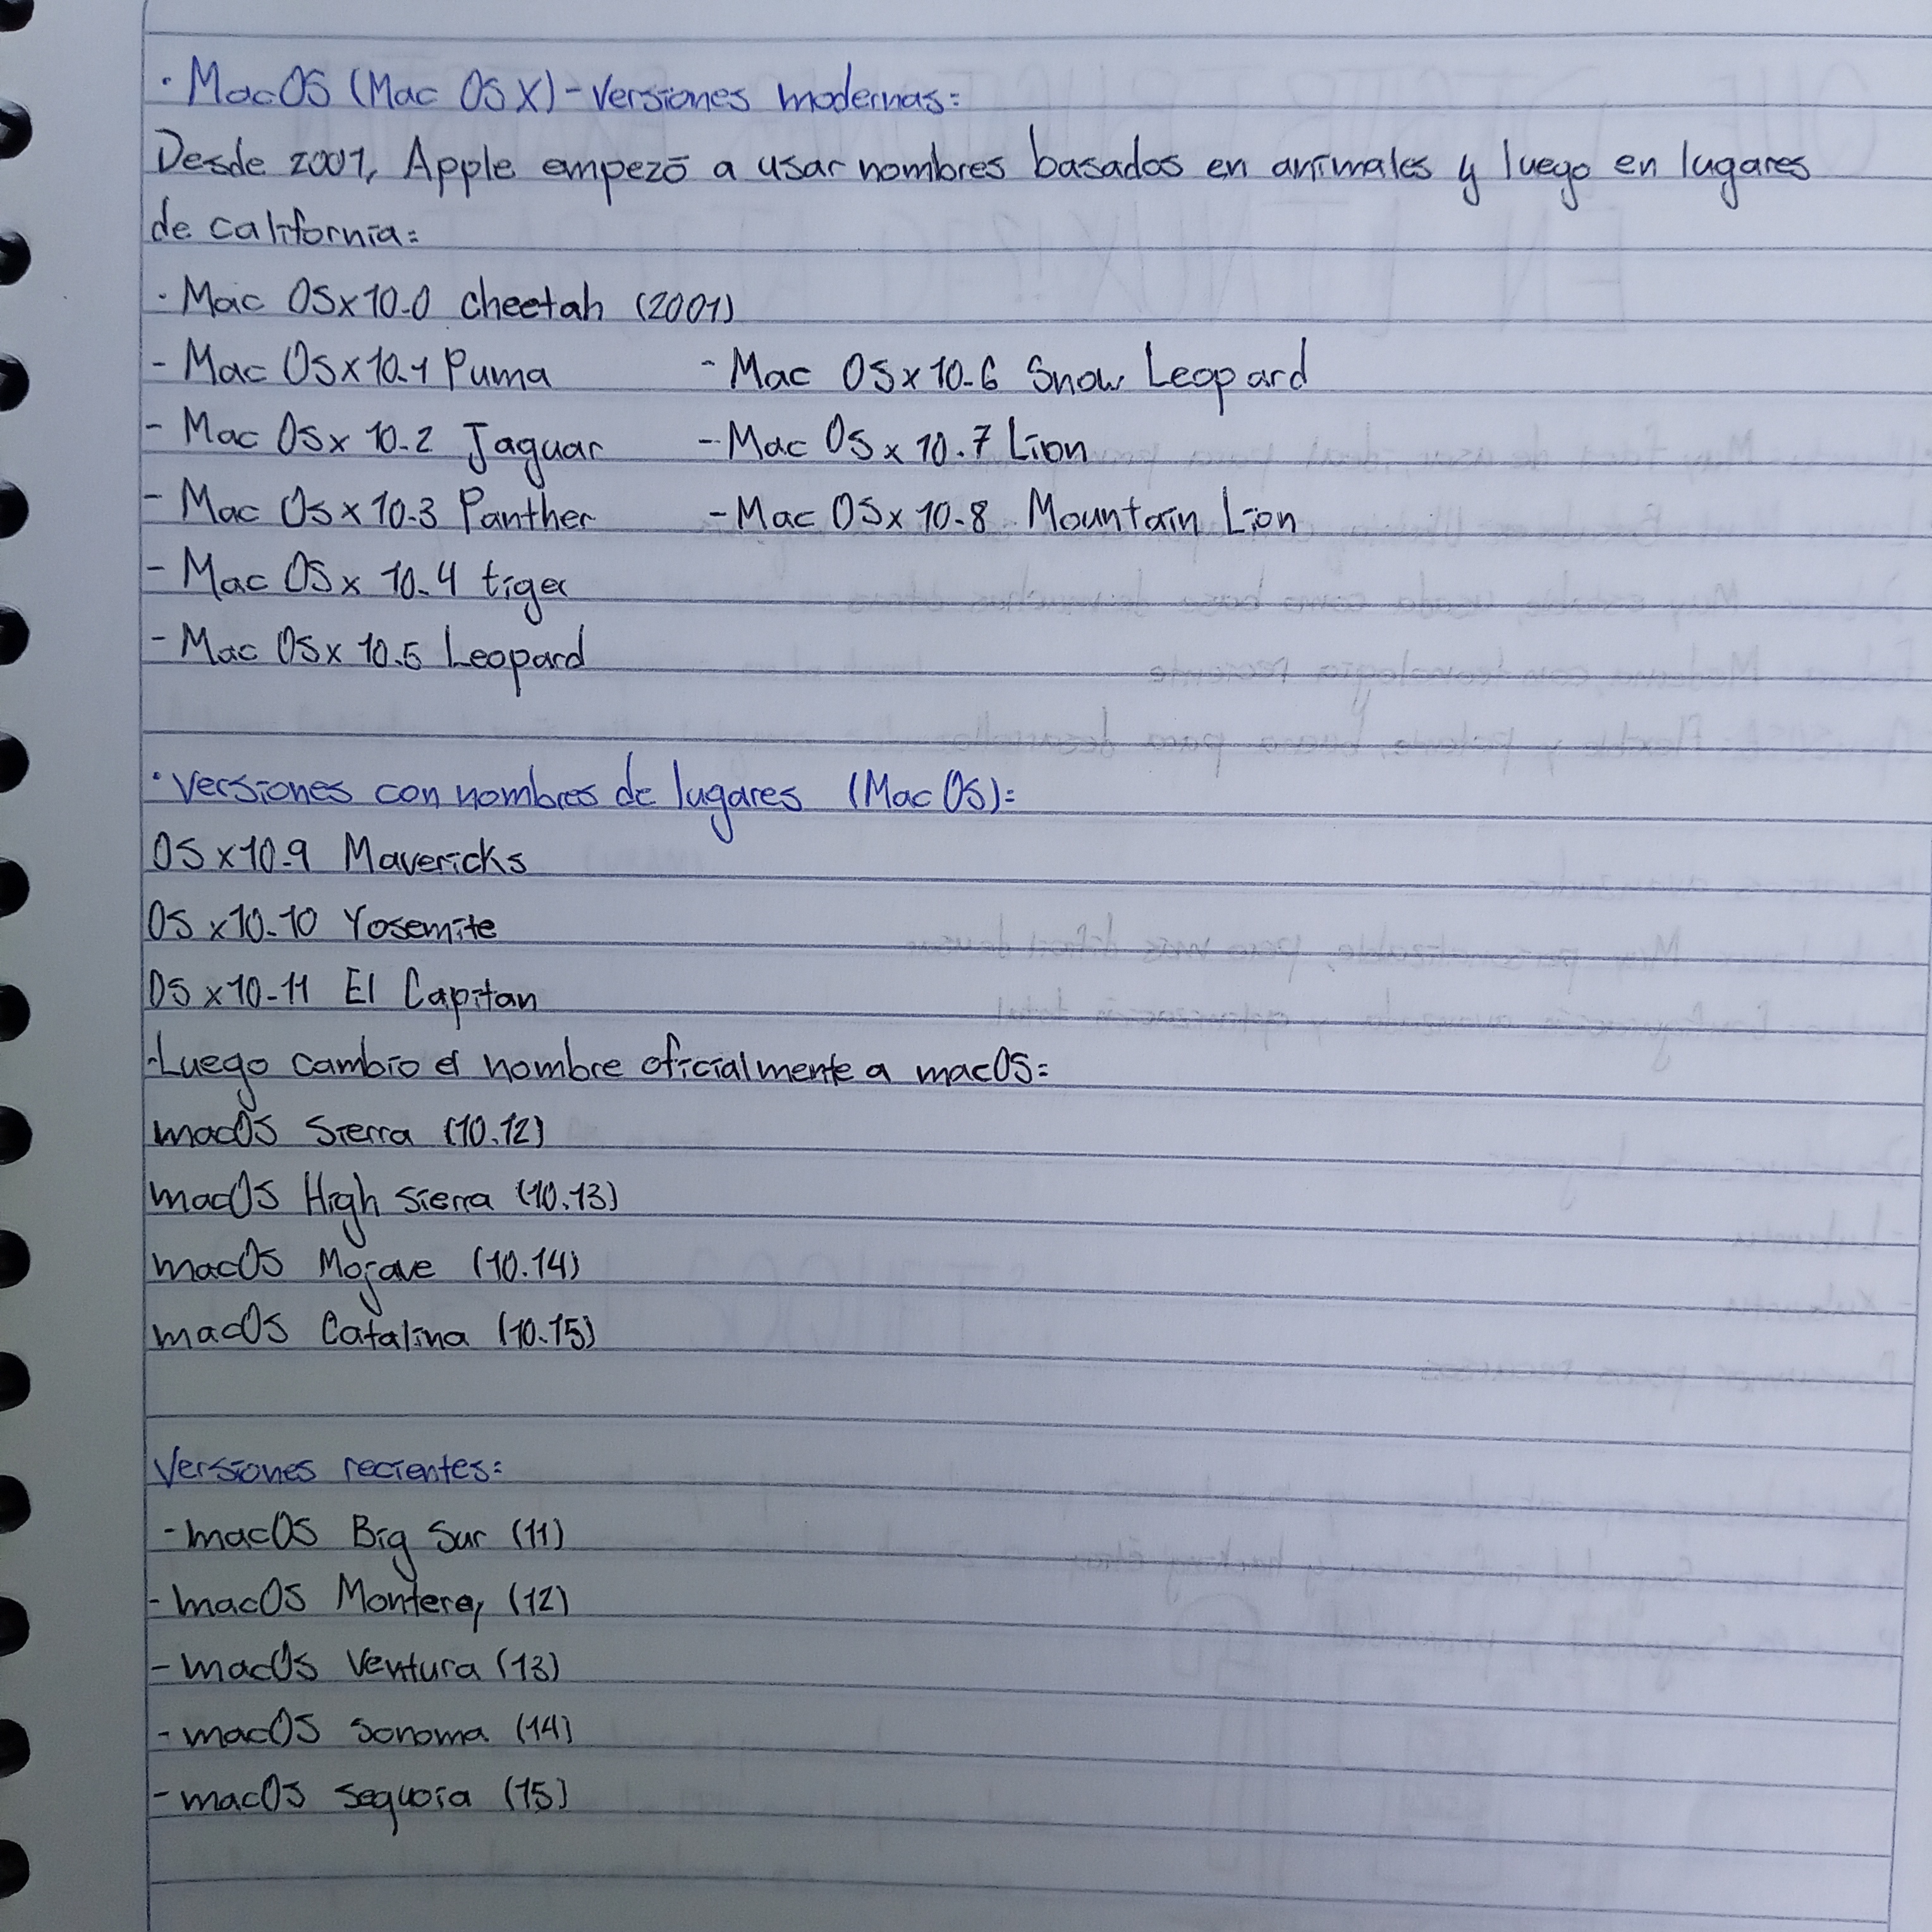 · MacOS (Mac OS X) - Versiones modernas:
Desde 2001, Apple empezó a usar nombres basados en animales y luego en lugares
de california:
· Mac OSx10.0 cheetah (2001)
- Mac OSx10.1 Puma - Mac OSx10.6 Snow Leopard
- Mac OSx 10.2 Jaguar - Mac OSx 10.7 Lion
- Mac OSx 10.3 Panther - Mac OSx 10.8 Mountain Lion
- Mac OSx 10.4 tiger
- Mac OSx 10.5 Leopard
· Versiones con nombres de lugares (Mac OS):
OS x10.9 Mavericks
OS x10.10 Yosemite
OS x10-11 El Capitan
-Luego cambio el nombre oficialmente a macOS:
macOS Sierra (10.12)
macOS High Sierra (10.13)
macOS Mojave (10.14)
macOS Catalina (10.15)
Versiones recientes:
- macOS Big Sur (11)
- macOS Monterey (12)
- macOS Ventura (13)
- macOS Sonoma (14)
- macOS Sequoia (15)